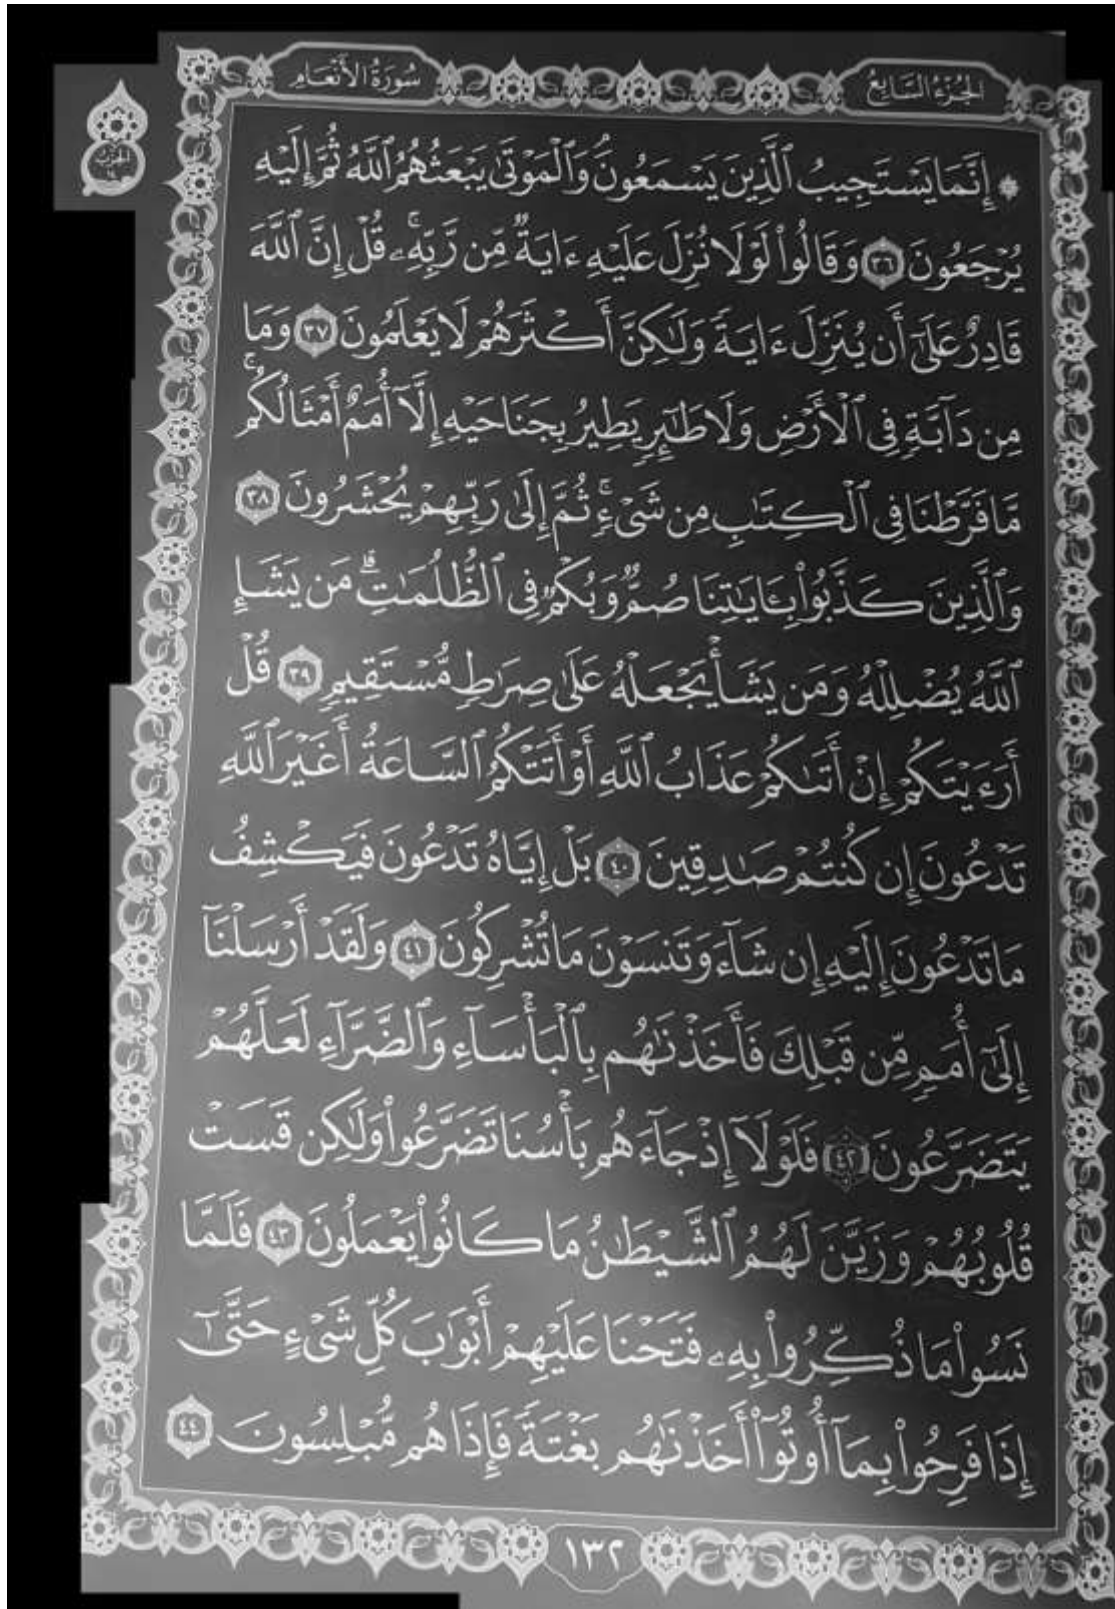 الجُزْءُ السَّابِعُ
سُورَةُ الأَنْعَامِ
الحزب
۞ إِنَّمَا يَسْتَجِيبُ ٱلَّذِينَ يَسْمَعُونَۘ وَٱلْمَوْتَىٰ يَبْعَثُهُمُ ٱللَّهُ ثُمَّ إِلَيْهِ
يُرْجَعُونَ ٣٦ وَقَالُوا۟ لَوْلَا نُزِّلَ عَلَيْهِ ءَايَةٌ مِّن رَّبِّهِۦۚ قُلْ إِنَّ ٱللَّهَ
قَادِرٌ عَلَىٰٓ أَن يُنَزِّلَ ءَايَةً وَلَٰكِنَّ أَكْثَرَهُمْ لَا يَعْلَمُونَ ٣٧ وَمَا
مِن دَآبَّةٍ فِى ٱلْأَرْضِ وَلَا طَٰٓئِرٍ يَطِيرُ بِجَنَاحَيْهِ إِلَّآ أُمَمٌ أَمْثَالُكُمۚ
مَّا فَرَّطْنَا فِى ٱلْكِتَٰبِ مِن شَىْءٍۚ ثُمَّ إِلَىٰ رَبِّهِمْ يُحْشَرُونَ ٣٨
وَٱلَّذِينَ كَذَّبُوا۟ بِـَٔايَٰتِنَا صُمٌّ وَبُكْمٌ فِى ٱلظُّلُمَٰتِۗ مَن يَشَإِ
ٱللَّهُ يُضْلِلْهُ وَمَن يَشَأْ يَجْعَلْهُ عَلَىٰ صِرَٰطٍ مُّسْتَقِيمٍ ٣٩ قُلْ
أَرَءَيْتَكُمْ إِنْ أَتَىٰكُمْ عَذَابُ ٱللَّهِ أَوْ أَتَتْكُمُ ٱلسَّاعَةُ أَغَيْرَ ٱللَّهِ
تَدْعُونَ إِن كُنتُمْ صَٰدِقِينَ ٤٠ بَلْ إِيَّاهُ تَدْعُونَ فَيَكْشِفُ
مَا تَدْعُونَ إِلَيْهِ إِن شَآءَ وَتَنسَوْنَ مَا تُشْرِكُونَ ٤١ وَلَقَدْ أَرْسَلْنَآ
إِلَىٰٓ أُمَمٍ مِّن قَبْلِكَ فَأَخَذْنَٰهُم بِٱلْبَأْسَآءِ وَٱلضَّرَّآءِ لَعَلَّهُمْ
يَتَضَرَّعُونَ ٤٢ فَلَوْلَآ إِذْ جَآءَهُم بَأْسُنَا تَضَرَّعُوا۟ وَلَٰكِن قَسَتْ
قُلُوبُهُمْ وَزَيَّنَ لَهُمُ ٱلشَّيْطَٰنُ مَا كَانُوا۟ يَعْمَلُونَ ٤٣ فَلَمَّا
نَسُوا۟ مَا ذُكِّرُوا۟ بِهِۦ فَتَحْنَا عَلَيْهِمْ أَبْوَٰبَ كُلِّ شَىْءٍ حَتَّىٰٓ
إِذَا فَرِحُوا۟ بِمَآ أُوتُوٓا۟ أَخَذْنَٰهُم بَغْتَةً فَإِذَا هُم مُّبْلِسُونَ ٤٤
١٣٢